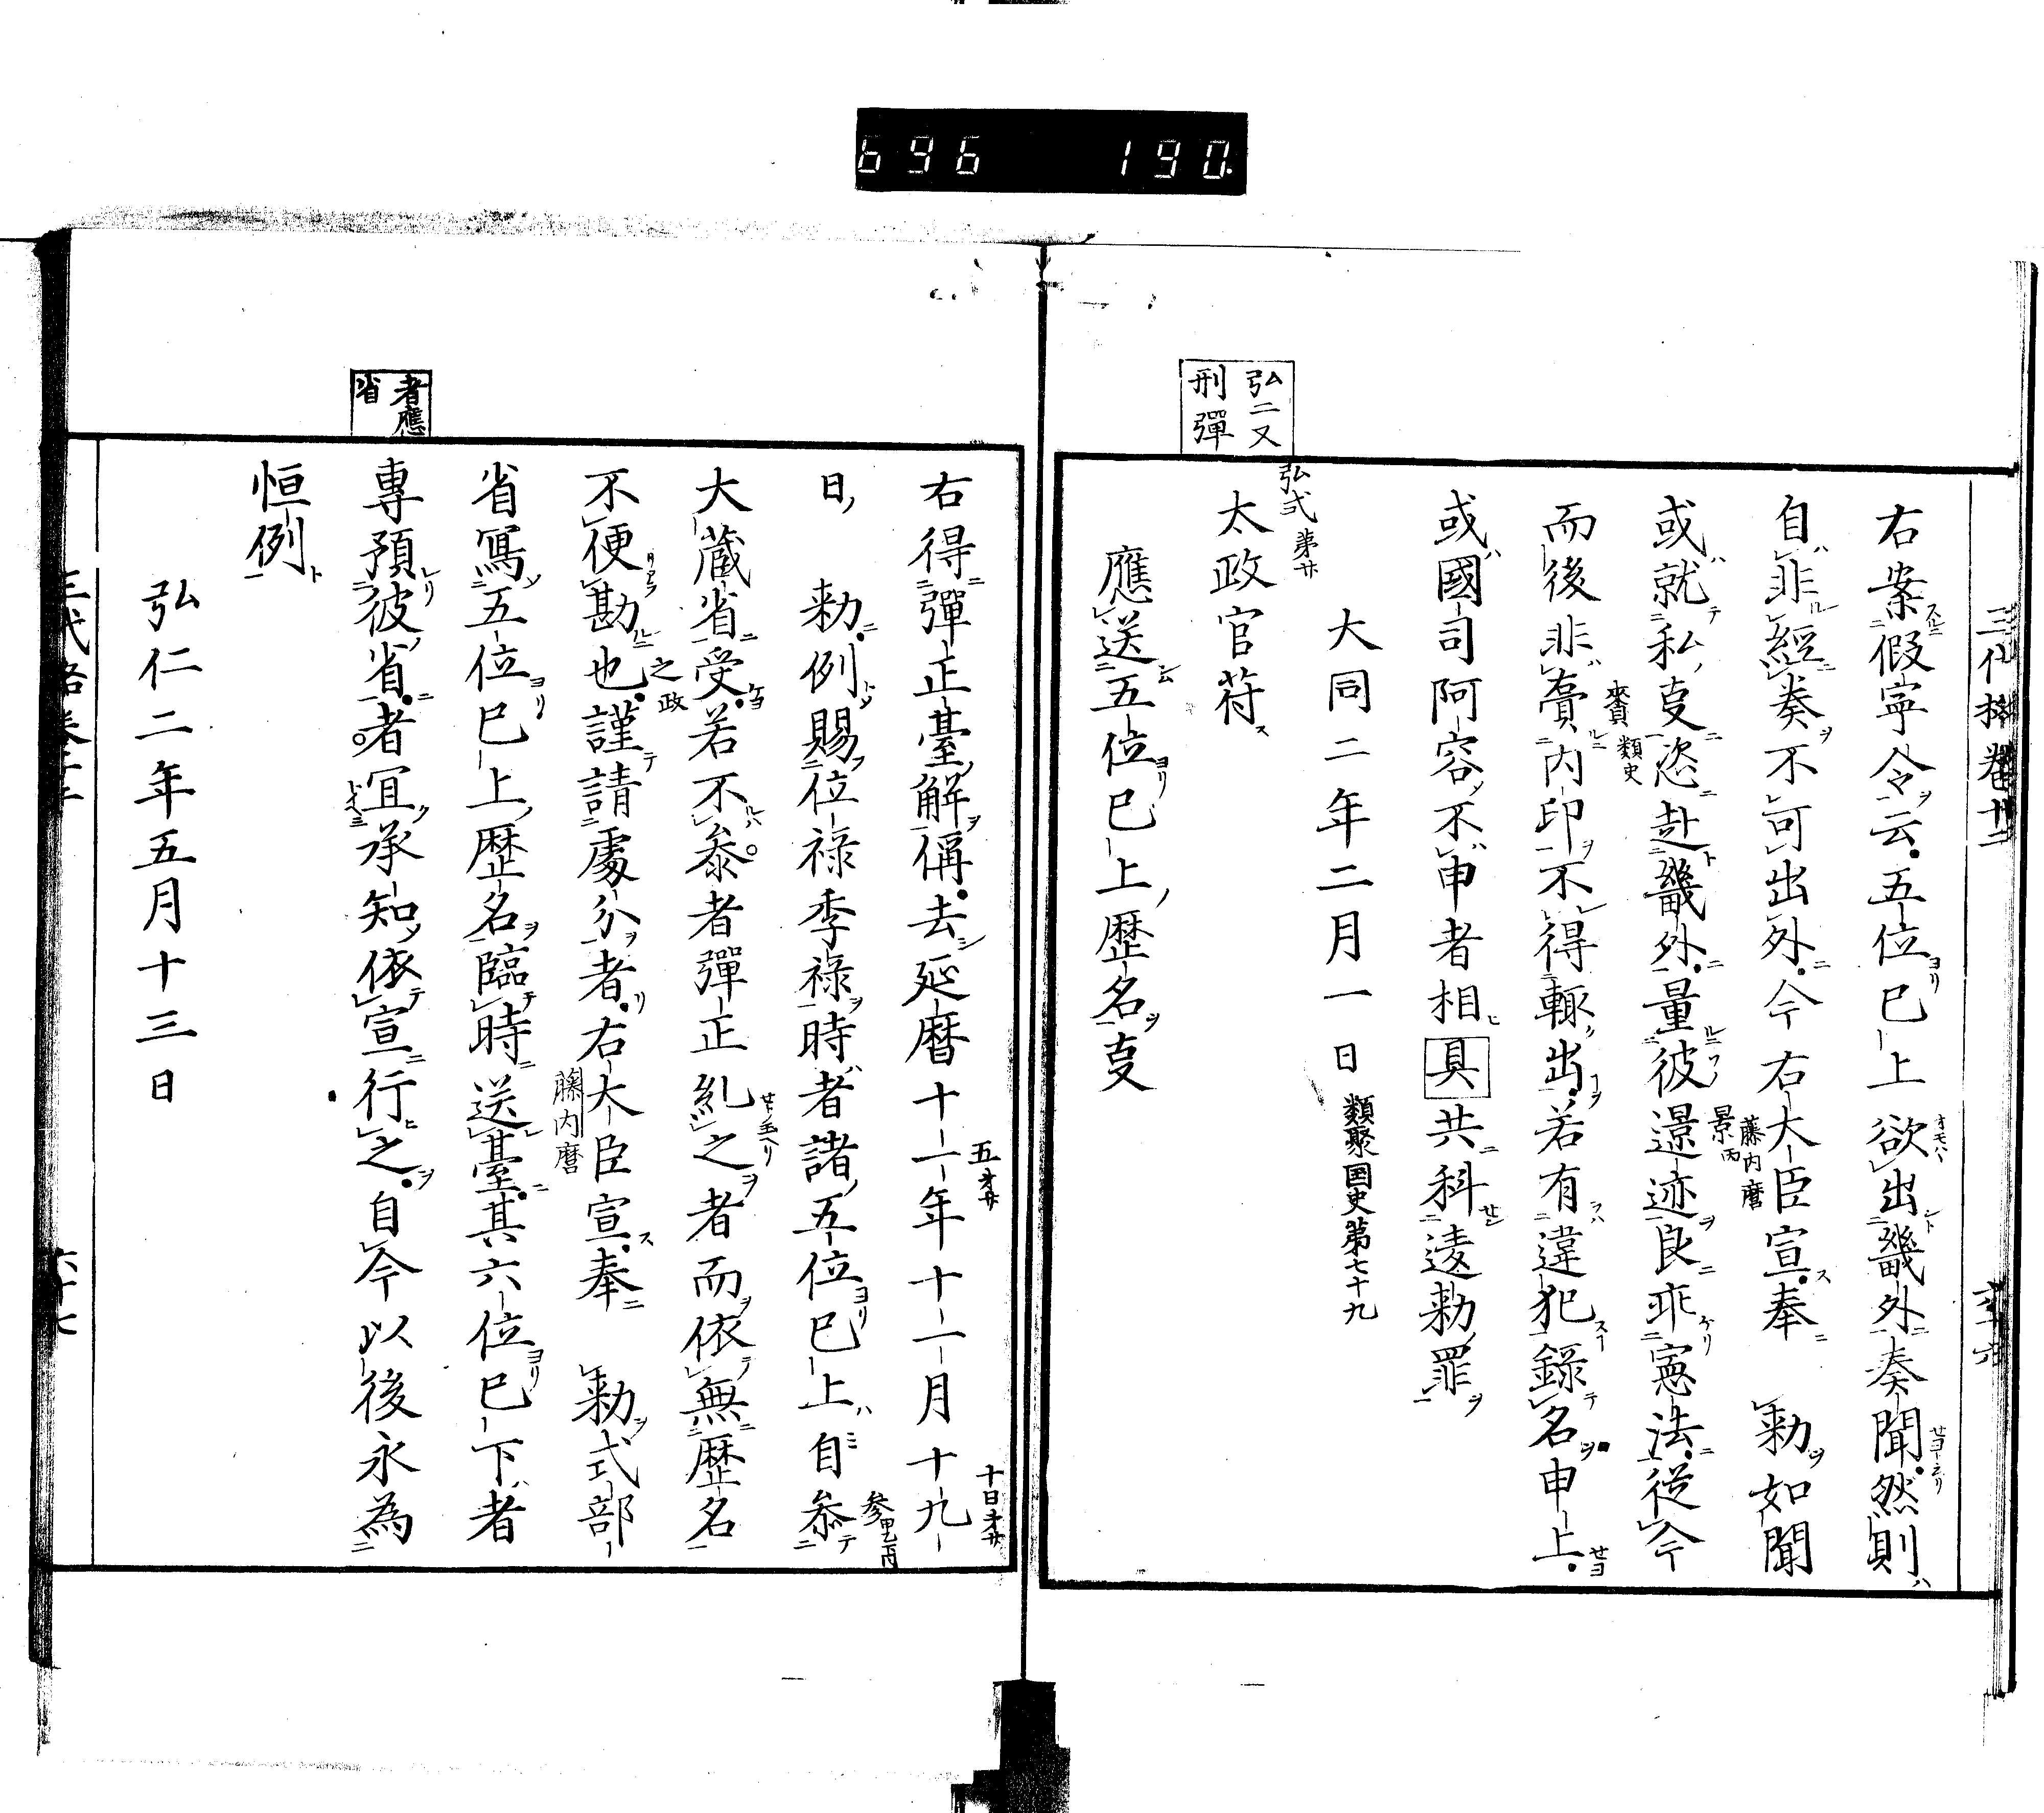 696 190
三代格卷十二
六十六
右案假寧令云五位已上欲出畿外奏聞然則
自非經奏不可出外今右大臣宣奉 勅如聞
藤内麿
或就私㕝恣赴畿外量彼璟迹良乖憲法從今
景丙
而後非賷内印不得輙出若有違犯錄名申上
賚類史
或國司阿容不申者相具共科違勅罪
大同二年二月一日
類聚国史第七十九
弘二又
刑彈
弘式第廿
太政官符
應送五位已上歴名㕝
右得彈正臺解偁去延暦十一年十一月十九
五才廿
十日才廿
日 勅例賜位祿季祿時者諸五位已上自叅
參甲乙丙
大蔵省受若不叅者彈正糺之者而依無歴名
不便勘也謹請處分者右大臣宣奉 勅式部
之政
藤内麿
省寫五位已上歴名臨時送臺其六位已下者
專預彼省者宜承知依宣行之自今以後永為
者應
省
恒例
弘仁二年五月十三日
三代格卷十二
六十七